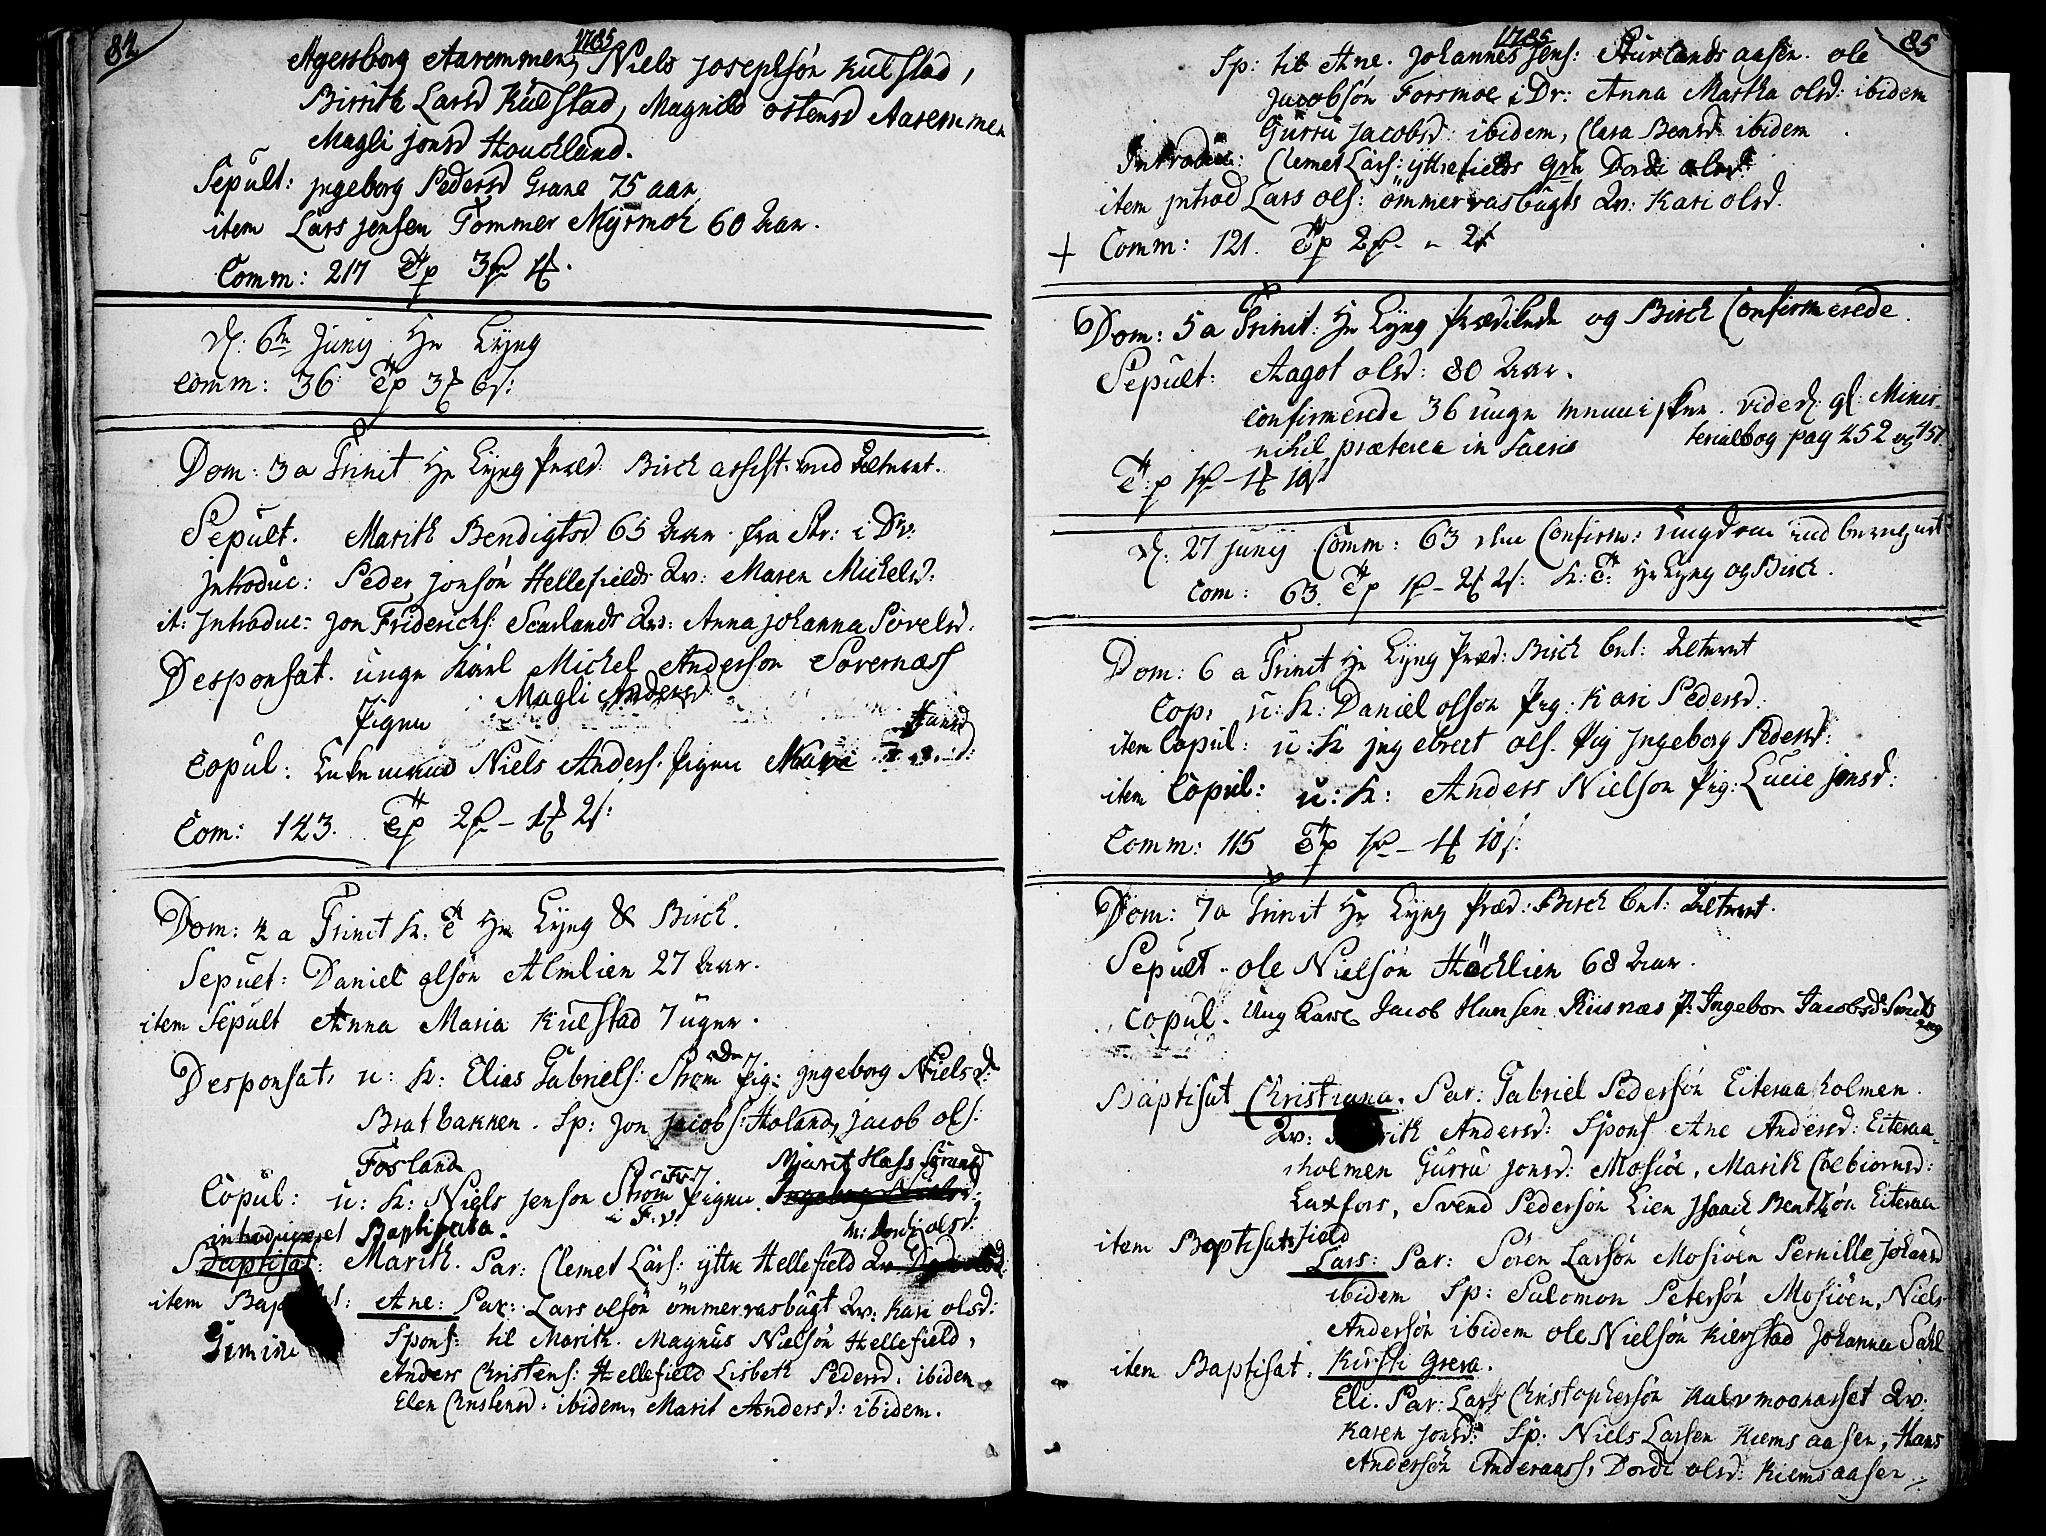 84
1785
Agersborg Aaremmen, Niels Josephsön Kulstad,
Birrith Larsd Kulstad, Magnild ostensd Aaremmen
Magli jonsd Houckland.
Sepult: jngeborg Pedersd Grane 75 aar
item Lars jensen Tømmer Myrmoe 60 Aar.
Comm: 217
d: 6te Junij Hr Lyng
Comm: 36
Dom: 3 a Trinit Hr Lyng Præd: Birch assist. ved Alteret.
Sepult. Marith Bendigtsd 65 Aar fra Str: i Dr:
jntroduc: Peder jonsön Hellefields Qv: Maren Michelsd:
it: Introduc: Jon Friderichs: Scarlands Qv: Anna johanna Povelsd.
Desponsat. unge Karl Michel Anderson Sövernæss
Pigen Magli Andersd
Hansd
Copul: Enkemand Niels Anders. Pigen
Com: 143.
Dom: 4 a Trinit Hr Lyng & Birch.
Sepult: Daniel olsön Almlien 27 Aar.
item Sepult Anna Maria Kulstad 7 uger.
Desponsat, u: K: Elias Gabriels: Strøm Pig: jngeborg Nielsd:
Bratbakken. Sp: Jon jacobs: Holand, jacob ols:
Fosland
Copul: u: K: Niels jenson Strøm Pigen
i F: v:
introduceret Baptisata.
Baptisat: Marith. Par: Clemet Lars: yttre Hellefield Qv
item Baptisat: Ane: Par: Lars olsön ömmervasbugt Qv: Kari olsd:
Spons: til Marith. Magnus Nielsön Hellefield,
Anders Christens: Hellefield Lisbeth Pedersd. ibidem
Elen Christensd. ibidem, Marit Andersd: ibidem.
85
1785
Sp: til Ane. Johannes Jens: Sturlands aasen. ole
Jacobsön Forsmoe i Dr: Anna Martha olsd: ibidem
Gurru Jacobsd: ibidem, Clara Bensd: ibidem
Introduc: Clemet Lars: yttrefields Qv: Dordi olsd:
item jntrod Lars ols: ömmervasbugts Qv: Kari olsd.
+ Comm: 121.
Dom: 5 a Trinit: Hr Lyng Prædikede og Birch Confirmerede.
Sepult: Aagot olsd: 80 Aar.
confirmerede 36 unge mennisker. vide d: gl: Minis-
terialbog pag 452 og 451
nihil præterea in Sacris
d: 27 Junij Comm: 63
Com: 63. Hr Lyng og Birch.
Dom: 6 a Trinit Hr Lyng Præd: Birch bet: Alteret
Cop: u: K: Daniel olson Pig: Kari Pedersd.
item Copul: u: K jngebrect ols. Pig Jngeborg Pedersd:
item Copul: u: K: Anders Nielson Pig: Lucie jonsd:
Comm: 115
Dom: 7 a Trinit Hr Lyng Præd: Birch bet: Alteret.
Sepult. ole Nielsön Höcklien 68 Aar.
Copul. Ung Karl Jacob Hansen Riisnæs P: Ingebor Jacobsd
Baptisat Christiana. Par: Gabriel Pedersön Eiteraaholmen.
Qv: Andersd: Spons Ane Andersd: Eiteraa-
holmen Gurru jonsd: Mosiöe, Marith Colbiornsd:
Laxfors, Svend Pedersön Lien Jsaach Bentsön Eiteraa
field
item Baptisat
Lars: Par: Sören Larsön Mosiöen Pernille johansd
ibidem Sp: Salomon Petersön Mosiöen, Niels
Andersön ibidem ole Nielsön Kierstad Johanna Dahl
Kirsti Greva.
item Baptisat.
Eli. Par: Lars Christophersön Kulvmoenasset Qv:
Karen jonsd: Sp: Niels Larsen Kiemsaasen, Hans
Andersön Anderaass, Dordi olsd: Kiemsaasen